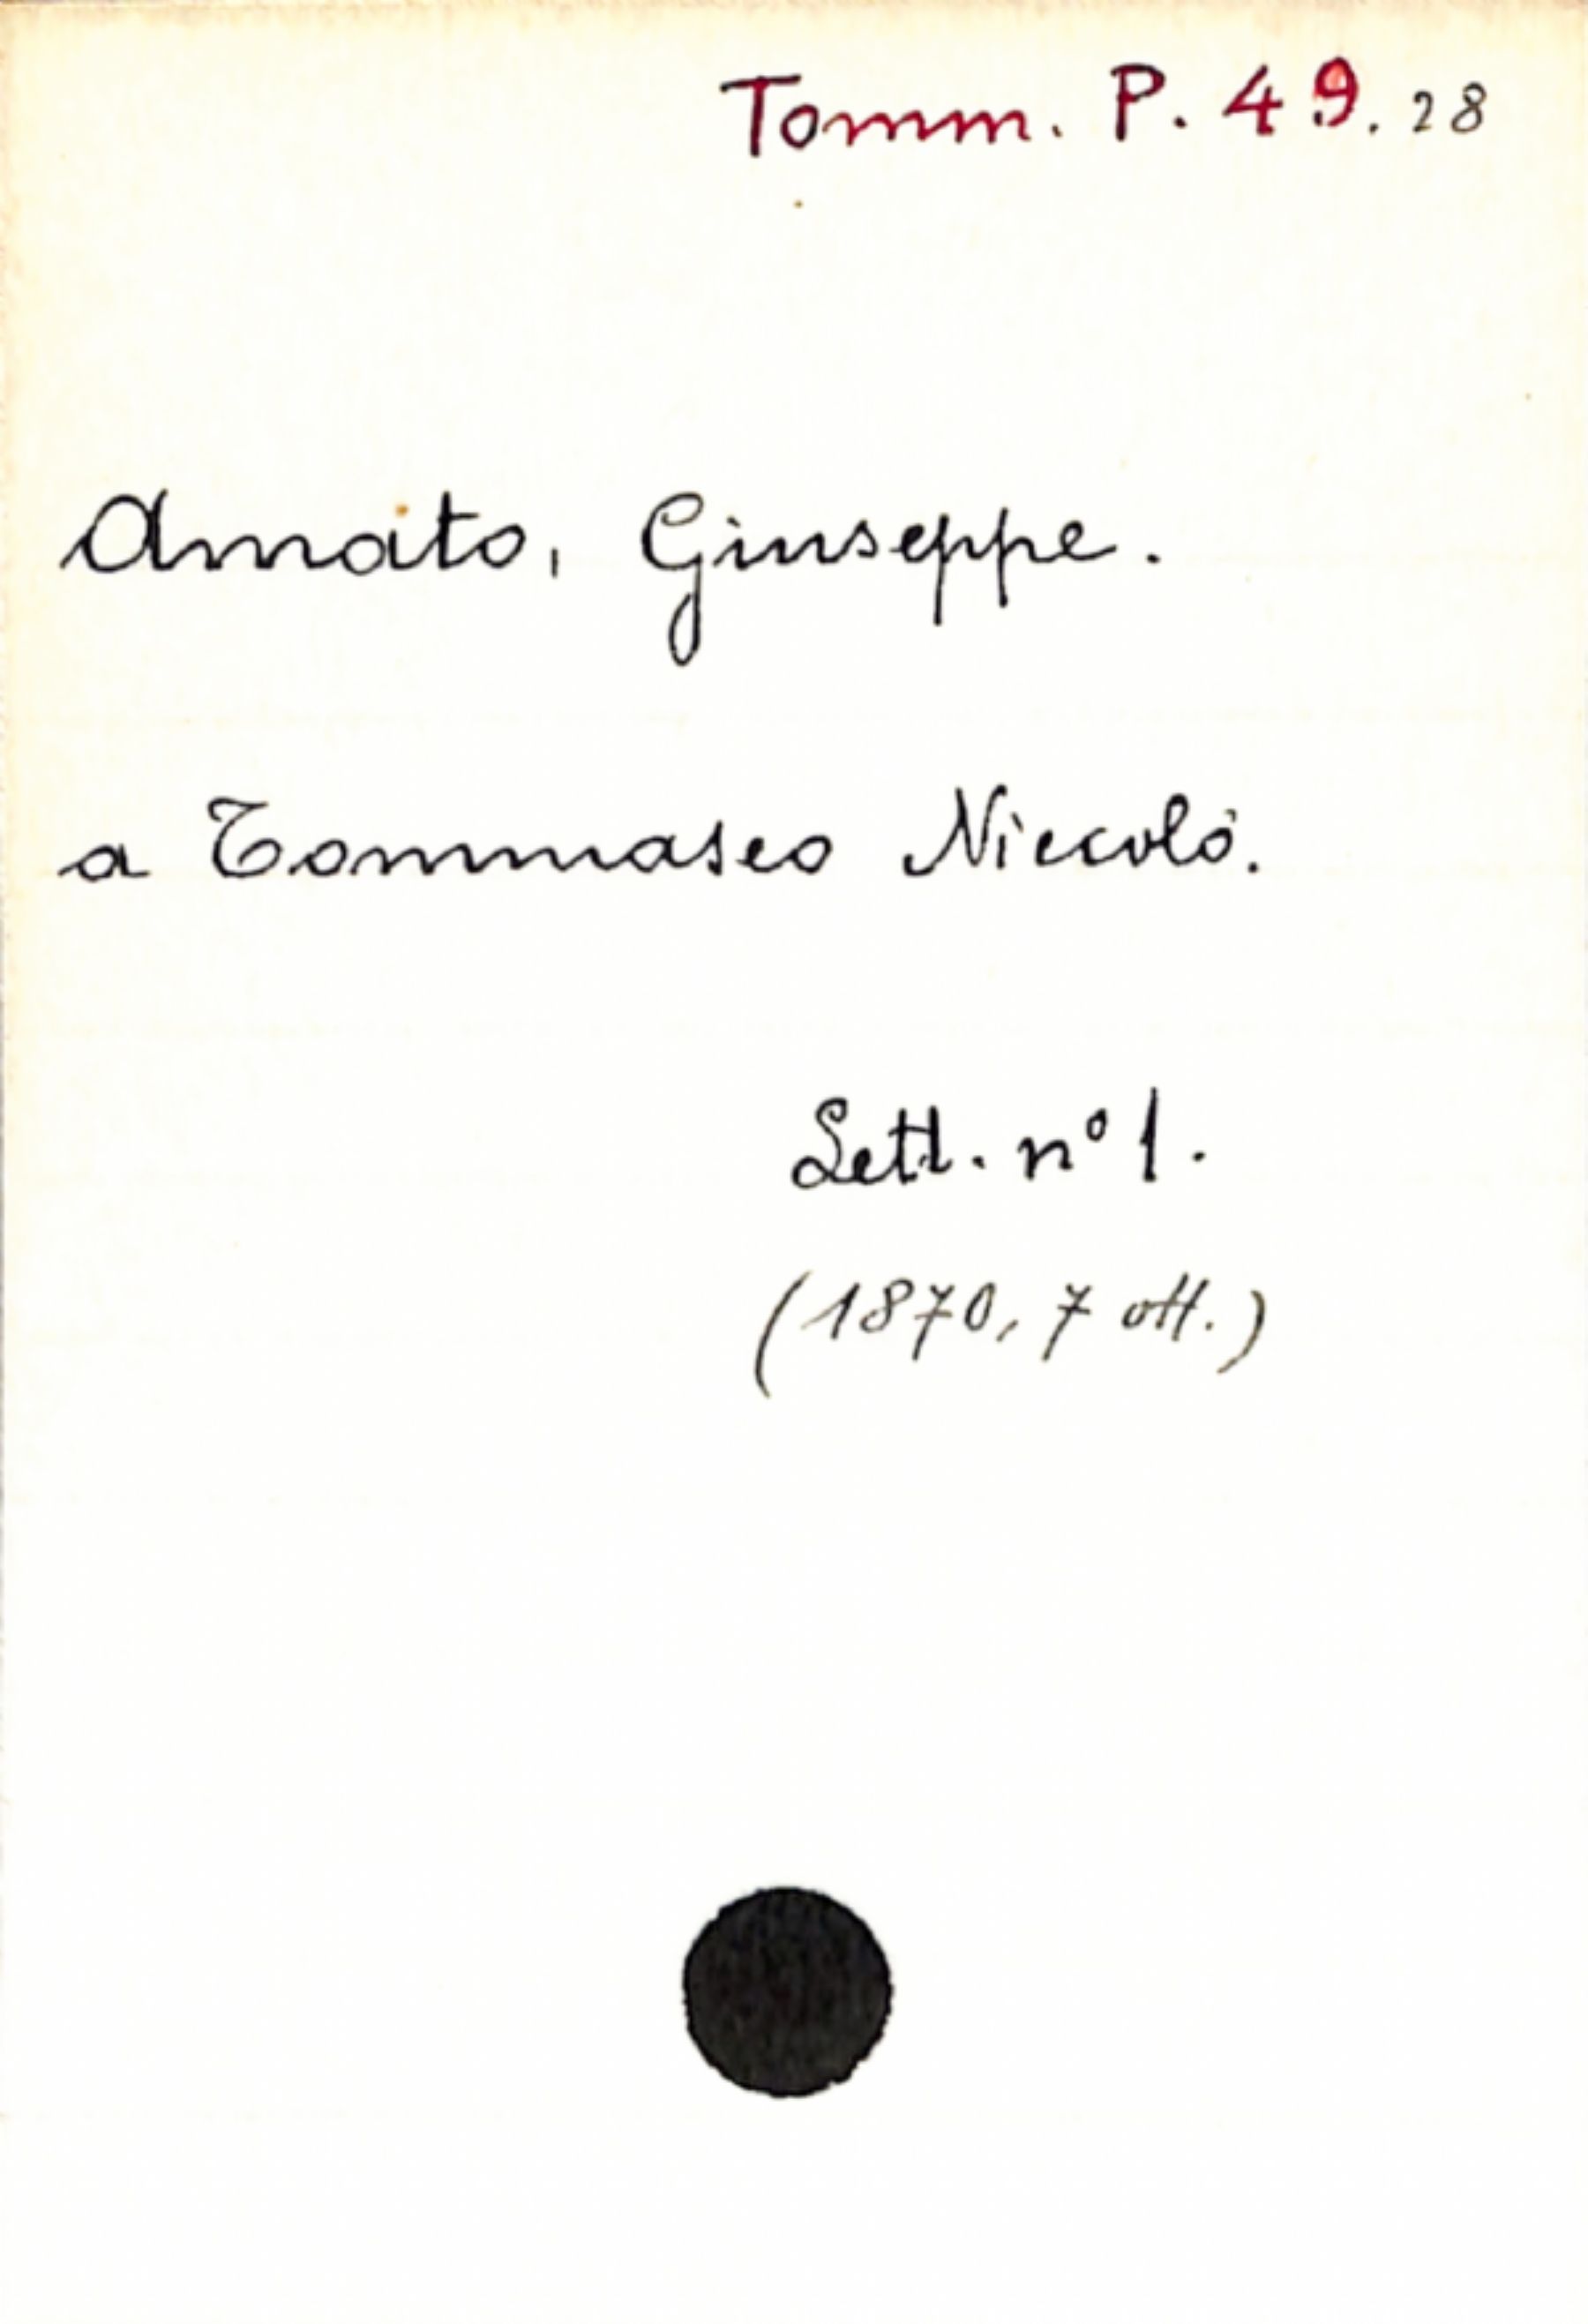 Tomm. P. 49. 28
Amato, Giuseppe.
a Tommaseo Niccolò.
Lett. nº 1.
(1870, 7 ott.)